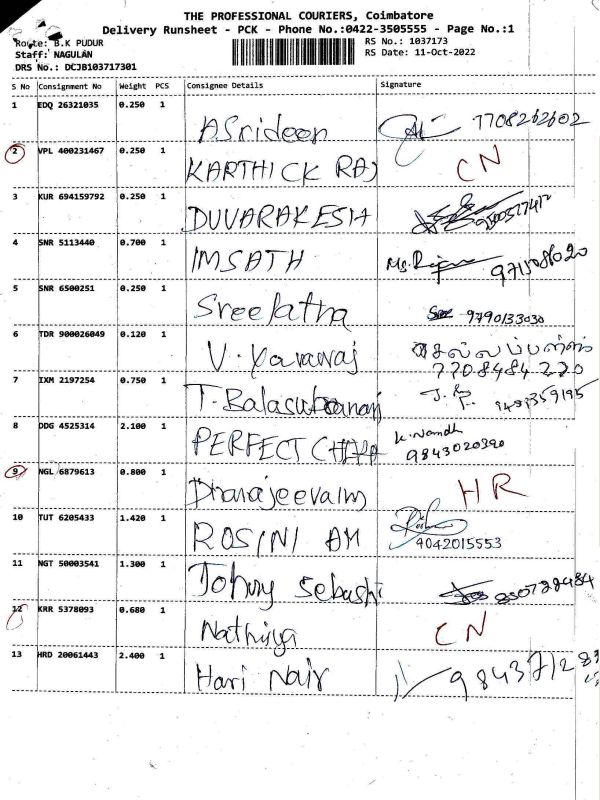 THE PROFESSIONAL COURIERS, Coimbatore
Delivery Runsheet - PCK - Phone No.:0422-3505555 - Page No.:1
Route: B.K PUDUR
RS No.: 1037173
Staff: NAGULAN
RS Date: 11-Oct-2022
DRS No.: DCJB103717301
S No Consignment No Weight PCS Consignee Details Signature
1 EDQ 26321035 0.250 1 ASrideep 7708262602
2 VPL 400231467 0.250 1 KARTHICK RAJ CN
3 KUR 694159792 0.250 1 DUVARAKESIA
4 SNR 5113440 0.700 1 IMSATH
5 SNR 6500251 0.250 1 Sreelatha 9790133030
6 TDR 900026049 0.120 1 V. செல்லப்பன்
7708484220
7 IXM 2197254 0.750 1 T. Balasub
8 DDG 4525314 2.100 1 PERFECT K. Nandh
9843020390
9 NGL 6879613 0.800 1 HR
10 TUT 6205433 1.420 1 ROSINI AM
9042015553
11 NGT 50003541 1.300 1 Johny Sebasti
12 KRR 5378093 0.680 1 Nathiya CN
13 HRD 20061443 2.400 1 Hari Nair